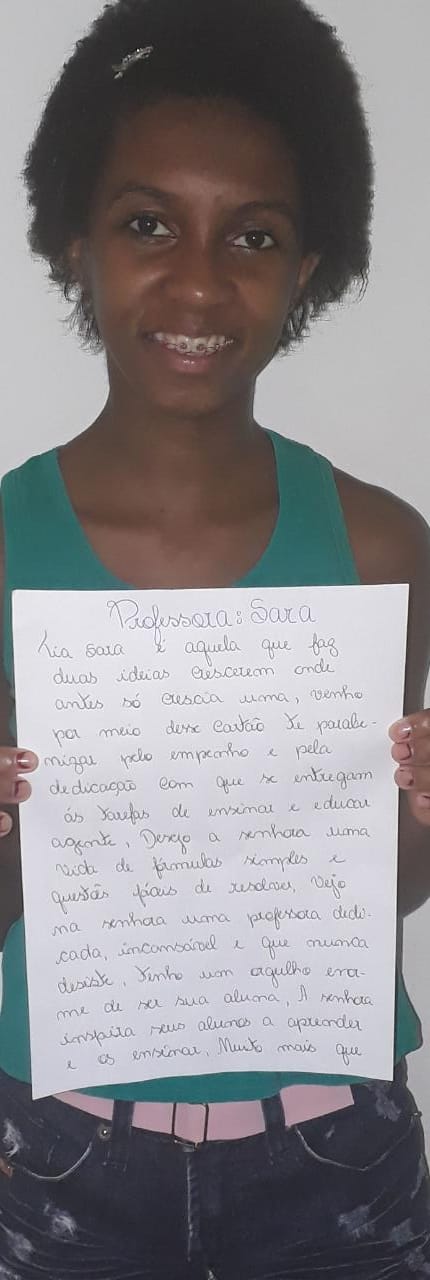 Professora: Sara
Tia Sara é aquela que faz
duas ideias crescerem onde
antes só crescia uma, venho
por meio desse cartão te parabe-
nizar pelo empenho e pela
dedicação com que se entregam
ás tarefas de ensinar e educar
agente, Desejo a senhora uma
vida de fórmulas simples e
questões fáceis de resolver, Vejo
na senhora uma professora dedi-
cada, incansável e que nunca
desiste, Tenho um orgulho enor-
me de ser sua aluna, A senhora
inspira seus alunos a aprender
e os ensinar, Muito mais que